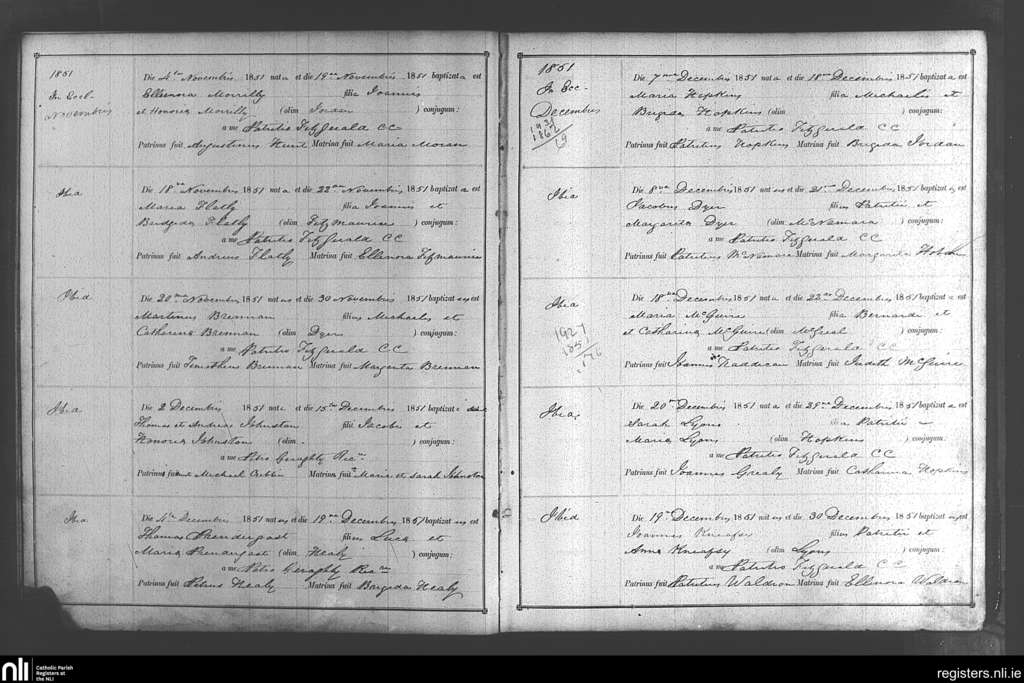 1851
In Eccl.
Novembris
Die 4ta Novembris 1851 nata et die 19na Novembris 1851 baptizata est
Ellenora Morrilly filia Joannis
et Honora Morrilly (olim Jordan ) conjugum:
a me Patritio FitzGerald CC
Patrinus fuit Augustinus Hunt Matrina fuit Maria Moran
Ibia
Die 18va Novembris 1851 nata et die 22 Novembris 1851 baptizata est
Maria Flatly filia Joannis et
Bridgida Flatly (olim Fitzmaurice ) conjugum:
a me Patritio FitzGerald CC
Patrinus fuit Andreas Flatly Matrina fuit Ellenora Fitzmaurice
Ibid
Die 20 Novembris 1851 natus et die 30 Novembris 1851 baptizatus est
Martinus Brennan filius Michaelis et
Catharina Brennan (olim Dyer ) conjugum:
a me Patritio FitzGerald CC
Patrinus fuit Timotheus Brennan Matrina fuit Margarita Brennan
Ibia
Die 2 Decembris 1851 nat et die 15 Decembris 1851 baptizat
Thomas et Andreas Johnston filii Jacobi et
Honora Johnston (olim ) conjugum:
a me Petro Geraghty
Patrinus fuit Michael Cribbin Matrina fuit Maria et Sarah Johnston
Ibia
Die 4ta Decembris 1851 natus et die 19na Decembris 1851 baptizatus est
Thomas Prendergast filius Luca et
Maria Prendergast (olim Healy ) conjugum:
a me Petro Geraghty
Patrinus fuit Petrus Healy Matrina fuit Brigida Healy
1851
In Ecc-
Decembris
1931
1862
69
Die 7ma Decembris 1851 nata et die 18 Decembris 1851 baptizata est
Maria Hopkins filia Michaelis et
Brigida Hopkins (olim ) conjugum:
a me Patritio FitzGerald CC
Patrinus fuit Patritius Hopkins Matrina fuit Brigida Jordan
Ibia
Die 8va Decembris 1851 natus et die 21 Decembris 1851 baptizatus est
Jacobus Dyer filius Patritii et
Margarita Dyer (olim McNamara ) conjugum:
a me Patritio FitzGerald CC
Patrinus fuit Patritius McNamara Matrina fuit Margarita
Ibia
1927
1851
176
Die 18va Decembris 1851 nata et die 22 Decembris 1851 baptizata est
Maria McGuire filia Bernardi et
et Catharina McGuire (olim McGreal ) conjugum:
a me Patritio FitzGerald CC
Patrinus fuit Joannes Raddican Matrina fuit Judith McGuire
Ibia
Die 20 Decembris 1851 nata et die 29na Decembris 1851 baptizata est
Sarah Lyons filia Patritii
Maria Lyons (olim Hopkins ) conjugum:
a me Patritio FitzGerald CC
Patrinus fuit Joannes Grealy Matrina fuit Catharina Hopkins
Ibid
Die 19 Decembris 1851 natus et die 30 Decembris 1851 baptizatus est
Joannes Kneafsy filius Patritii et
Anna Kneafsy (olim Lyons ) conjugum:
a me Patritio FitzGerald CC
Patrinus fuit Patritius Waldron Matrina fuit Ellenora Waldron
nli
Catholic Parish
Registers at
the NLI
registers.nli.ie